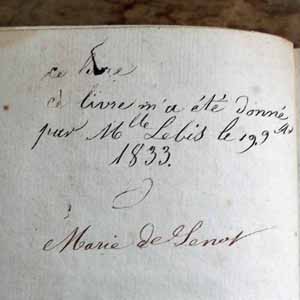 ce livre
cè livre m'a été donné
par Mlle Lebis le 19 9bre
1833.
à
Marie de Lenot